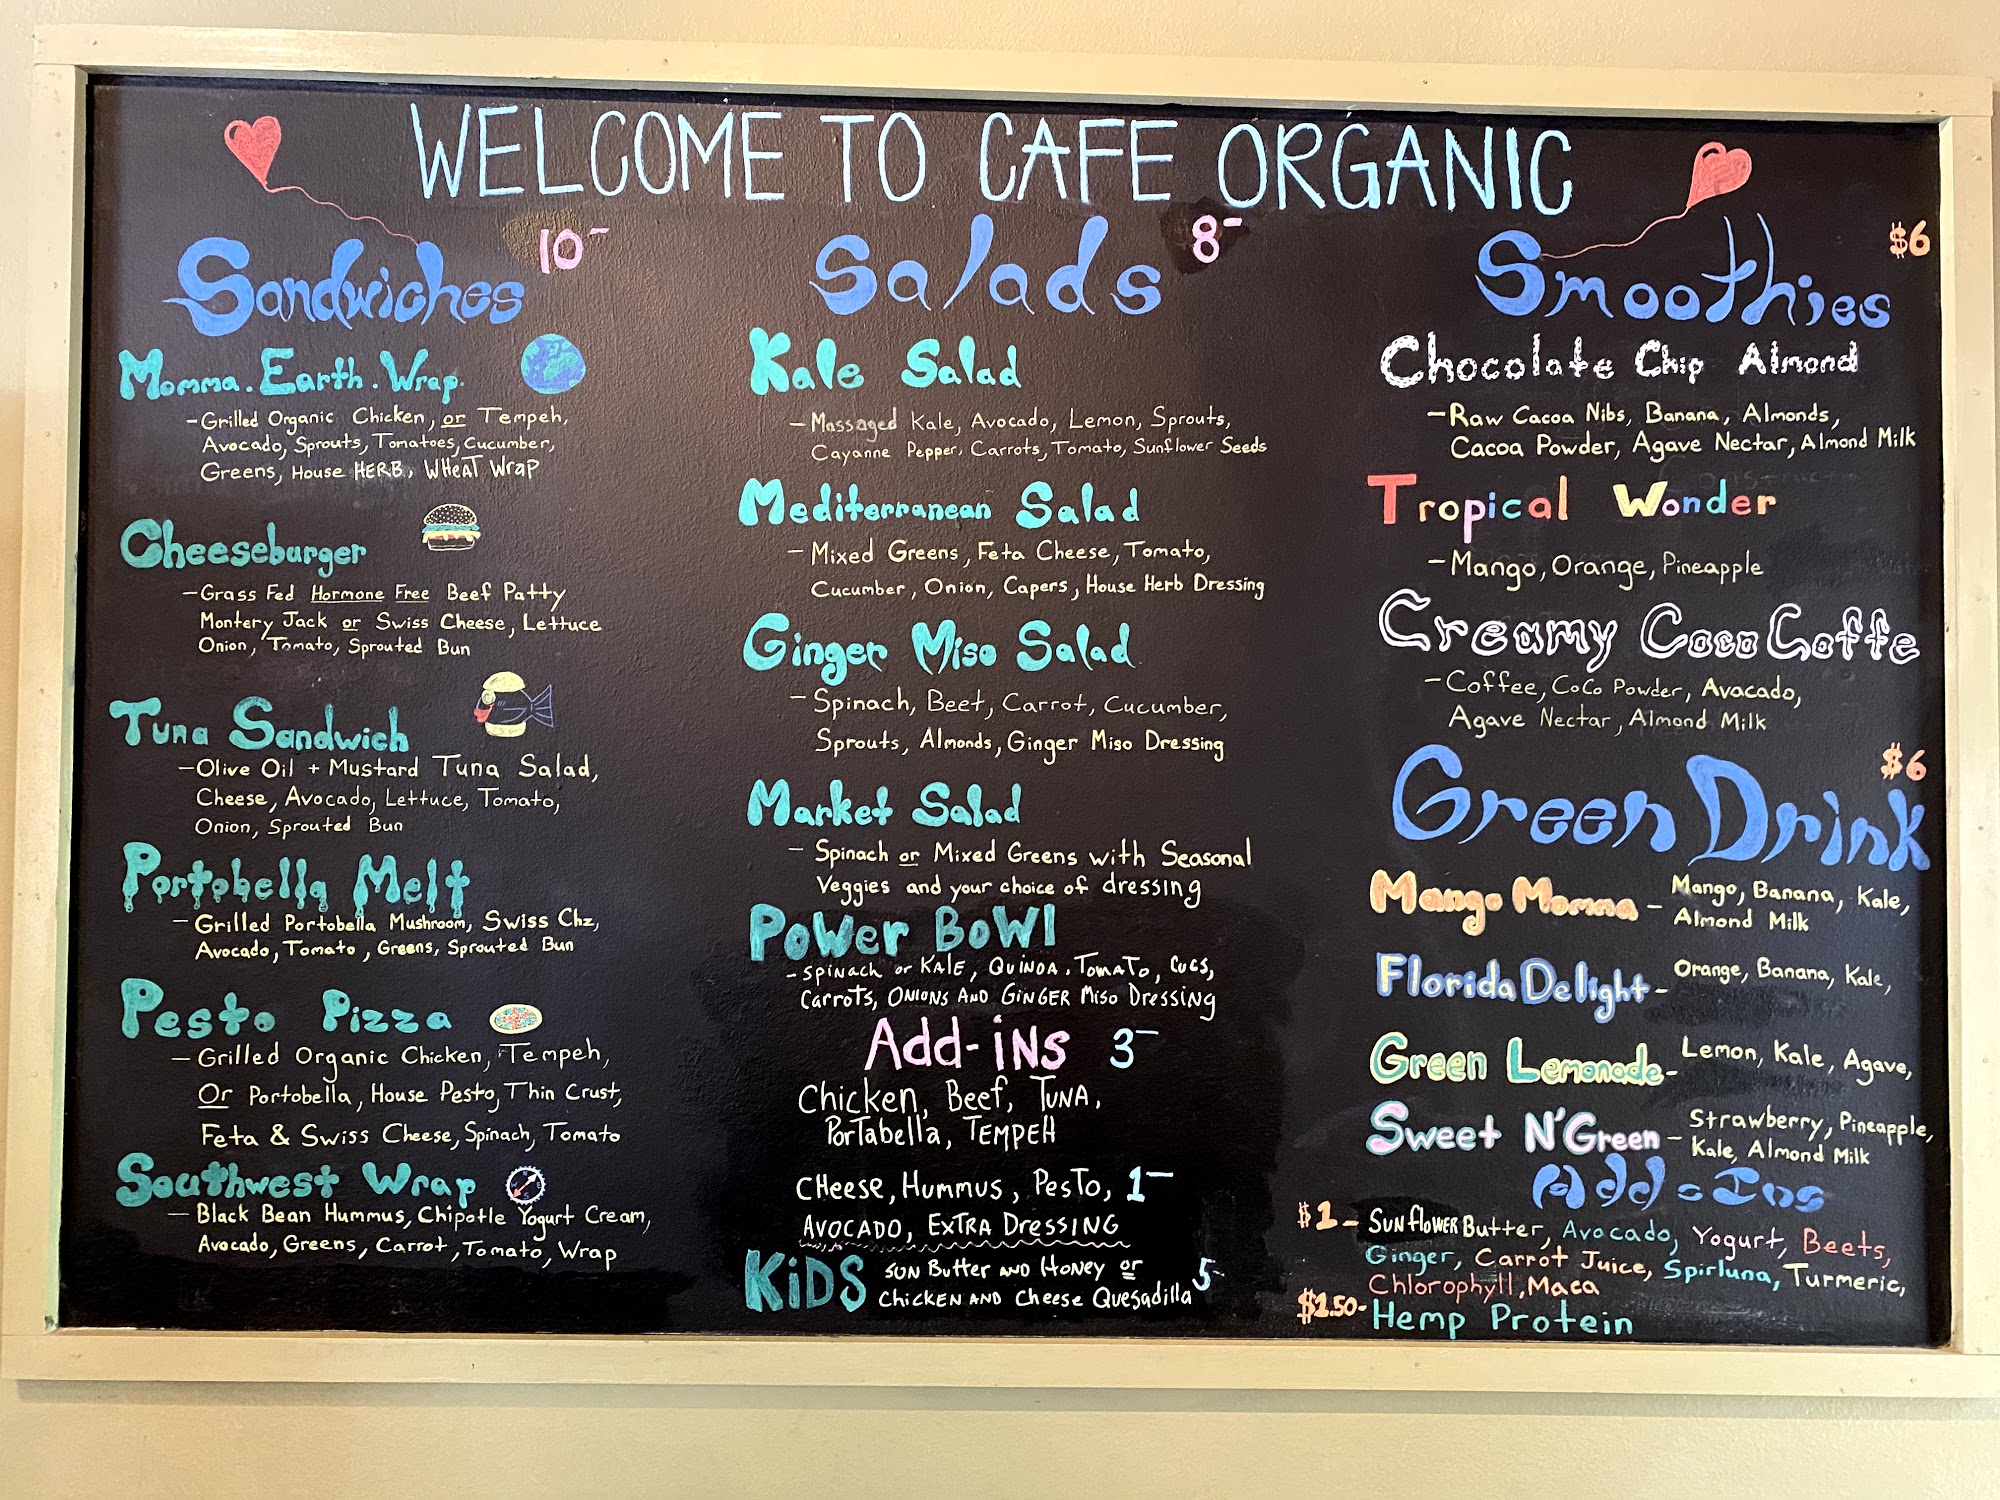 WELCOME TO CAFE ORGANIC
Sandwiches 10-
Momma.Earth.Wrap.
-Grilled Organic Chicken, or Tempeh,
Avocado, Sprouts, Tomatoes, Cucumber,
Greens, House HERB, WHEAT Wrap
Cheeseburger
-Grass Fed Hormone Free Beef Patty
Montery Jack or Swiss Cheese, Lettuce
Onion, Tomato, Sprouted Bun
Tuna Sandwich
-Olive Oil + Mustard Tuna Salad,
Cheese, Avocado, Lettuce, Tomato,
Onion, Sprouted Bun
Portobella Melt
-Grilled Portobella Mushroom, Swiss Chz,
Avocado, Tomato, Greens, Sprouted Bun
Pesto Pizza
-Grilled Organic Chicken, Tempeh,
Or Portobella, House Pesto, Thin Crust,
Feta & Swiss Cheese, Spinach, Tomato
Southwest Wrap
-Black Bean Hummus, Chipotle Yogurt Cream,
Avocado, Greens, Carrot, Tomato, Wrap
Salads 8-
Kale Salad
-Massaged Kale, Avocado, Lemon, Sprouts,
Cayanne Pepper, Carrots, Tomato, Sunflower Seeds
Mediterranean Salad
-Mixed Greens, Feta Cheese, Tomato,
Cucumber, Onion, Capers, House Herb Dressing
Ginger Miso Salad
-Spinach, Beet, Carrot, Cucumber,
Sprouts, Almonds, Ginger Miso Dressing
Market Salad
-Spinach or Mixed Greens with Seasonal
Veggies and your choice of dressing
POWER BOWl
-SPiNACH or KALE, QUiNOA, TOMATO, CUCS,
CARROTS, ONIONS AND GiNGER Miso DressiNg
Add-iNs 3-
Chicken, Beef, TUNA,
PorTabella, TEMPEH
CHeese, HUMMUS, PesTo, 1-
AVOCADO, EXTRA DRESSING
KiDS SUN Butter AND HONey or
CHiCKEN AND Cheese Quesadilla 5-
Smoothies $6
Chocolate Chip Almond
-Raw Cacoa Nibs, Banana, Almonds,
Cacoa Powder, Agave Nectar, Almond Milk
Tropical Wonder
-Mango, Orange, Pineapple
Creamy Coco Coffe
-Coffee, CoCo Powder, Avocado,
Agave Nectar, Almond Milk
Green Drink $6
Mango Momma - Mango, Banana, Kale,
Almond Milk
Florida Delight - Orange, Banana, Kale,
Green Lemonade - Lemon, Kale, Agave,
Sweet N'Green - Strawberry, Pineapple,
Kale, Almond Milk
Add-Ins
$1- SUNflOWER Butter, Avocado, Yogurt, Beets,
Ginger, Carrot Juice, Spirluna, Turmeric,
Chlorophyll, Maca
$1.50- Hemp Protein